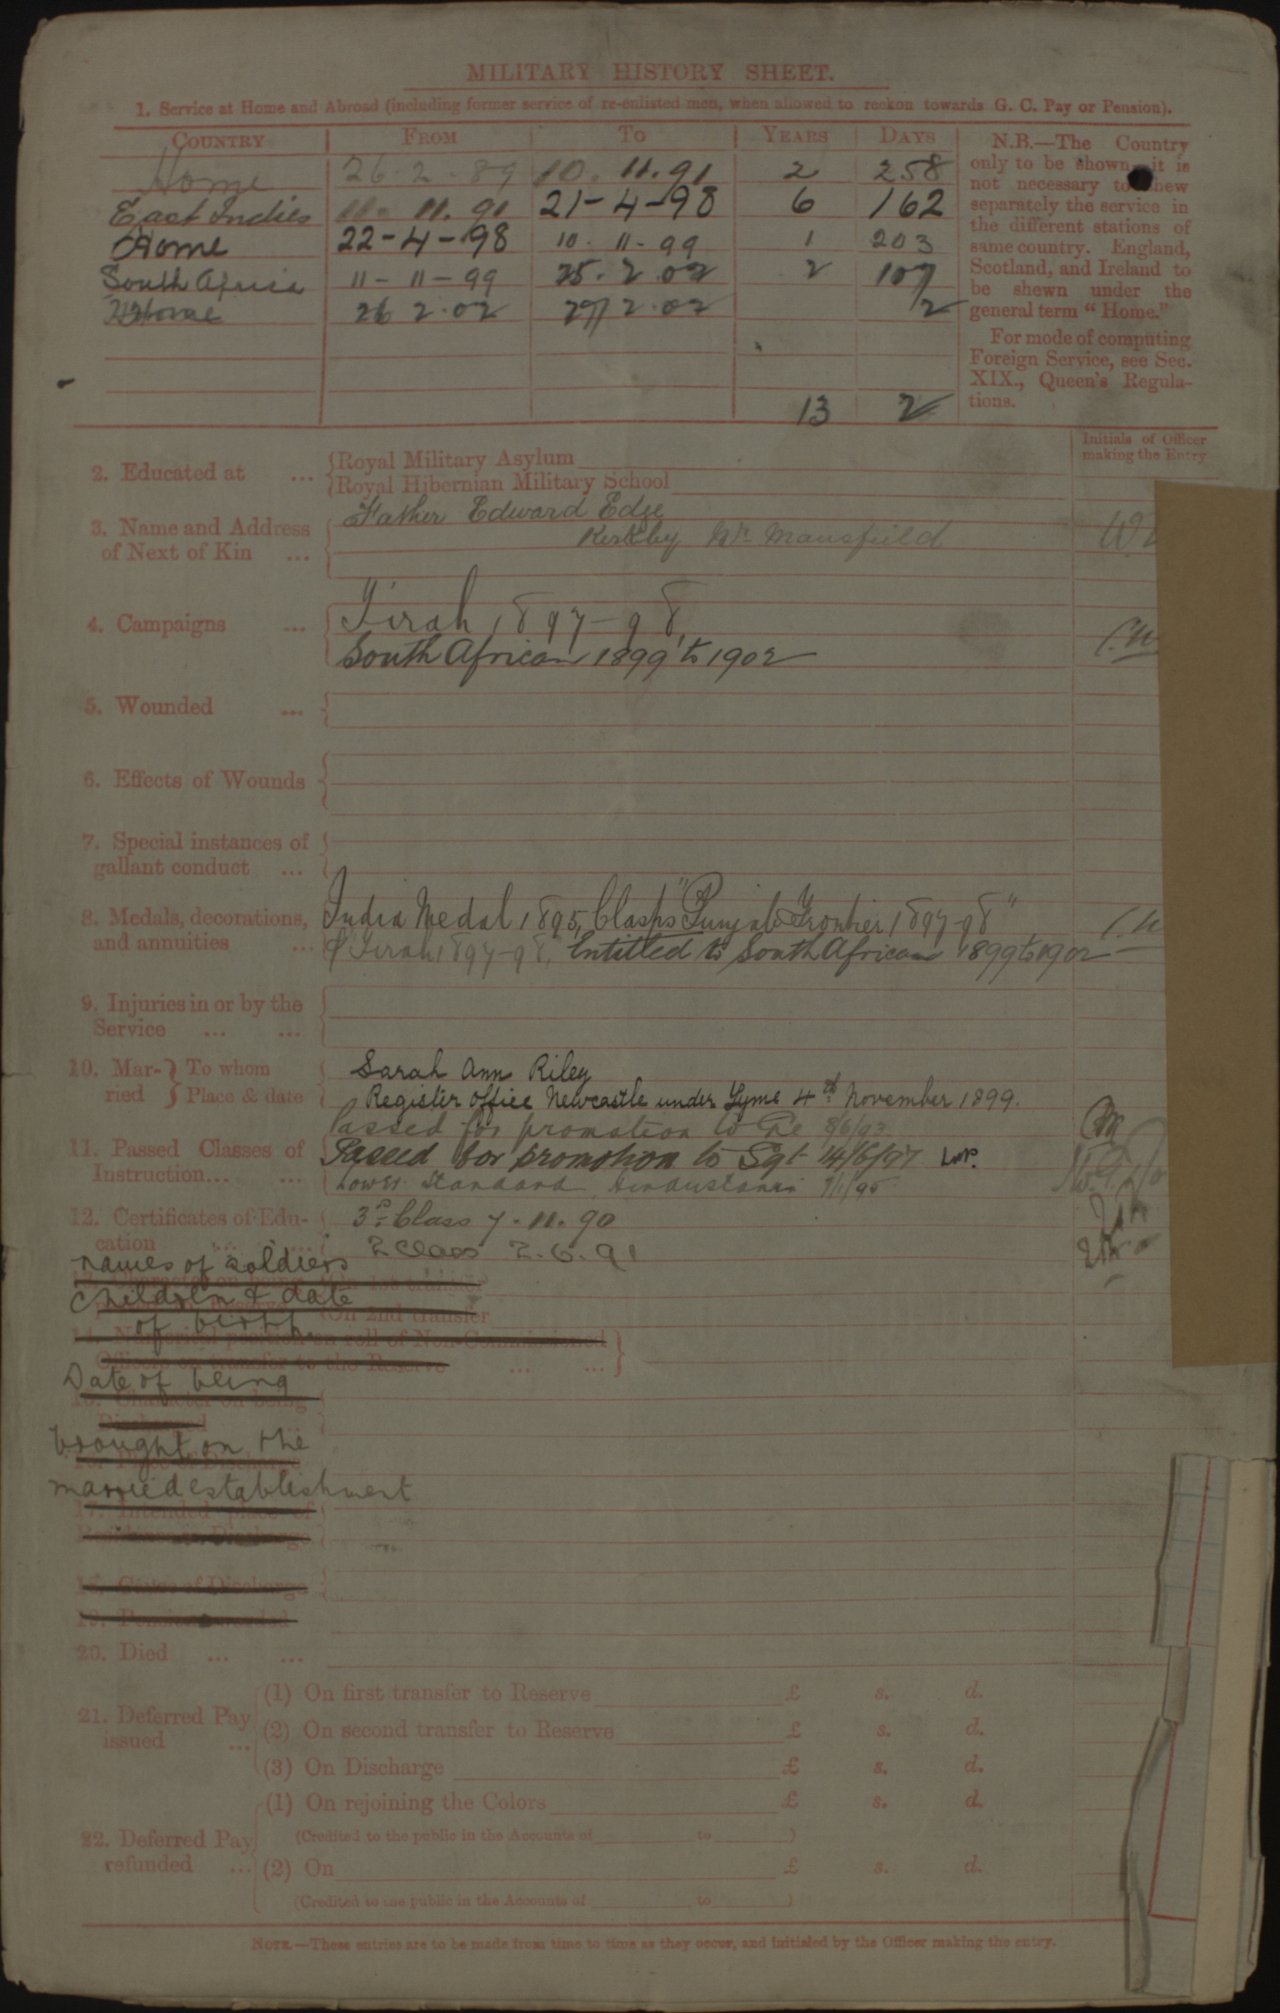 MILITARY HISTORY SHEET.
1. Service at Home and Abroad (including former service of re-enlisted men, when allowed to reckon towards G. C. Pay or Pension).
COUNTRY FROM TO YEARS DAYS
Home 26 2 89 10. 11. 91 2 258
East Indies 11. 11. 91 21-4-98 6 162
Home 22-4-98 10. 11-99 1 203
South Africa 11-11-99 25. 2. 02 2 107
Home 26 2. 02 27 2. 02 2
13 2
N.B.—The Country
only to be shown, it is
not necessary to shew
separately the service in
the different stations of
same country. England,
Scotland, and Ireland to
be shewn under the
general term "Home."
For mode of computing
Foreign Service, see Sec.
XIX., Queen's Regula-
tions.
Initials of Officer
making the Entry
2. Educated at ... Royal Military Asylum
Royal Hibernian Military School
3. Name and Address
of Next of Kin ...
Father Edward Edge
Kirkby Nr. Mansfield
4. Campaigns ... Tirah 1897-98
South African 1899 to 1902
5. Wounded ...
6. Effects of Wounds
7. Special instances of
gallant conduct ...
8. Medals, decorations,
and annuities ...
India Medal 1895, Clasps "Punjab Frontier 1897-98"
& "Tirah 1897-98," Entitled to South African 1899 to 1902
9. Injuries in or by the
Service ... ...
10. Mar- } To whom
ried } Place & date
Sarah Ann Riley
Register Office Newcastle under Lyme 4th November 1899.
11. Passed Classes of
Instruction... ...
Passed for promotion to Cpe 8/6/93
Passed for promotion to Sgt 14/6/97
Lower Standard Hindustani 7/1/95
12. Certificates of Edu-
cation
3rd Class 7. 11. 90
2 Class 2. 6. 91
names of soldiers
children & date
On 2nd transfer
of birth.
14. Numerical position on roll of Non-Commissioned
Officers on transfer to the Reserve ... ...
Date of being
15. Character on being
Discharged
brought on the
married establishment
17. Intended place of
Residence on Discharge
18. Cause of Discharge
19. Pension awarded
20. Died ... ...
21. Deferred Pay
issued ...
(1) On first transfer to Reserve £ s. d.
(2) On second transfer to Reserve £ s. d.
(3) On Discharge £ s. d.
22. Deferred Pay
refunded ...
(1) On rejoining the Colors £ s. d.
(Credited to the public in the Accounts of to )
(2) On £ s. d.
(Credited to the public in the Accounts of to )
NOTE.—These entries are to be made from time to time as they occur, and initialed by the Officer making the entry.